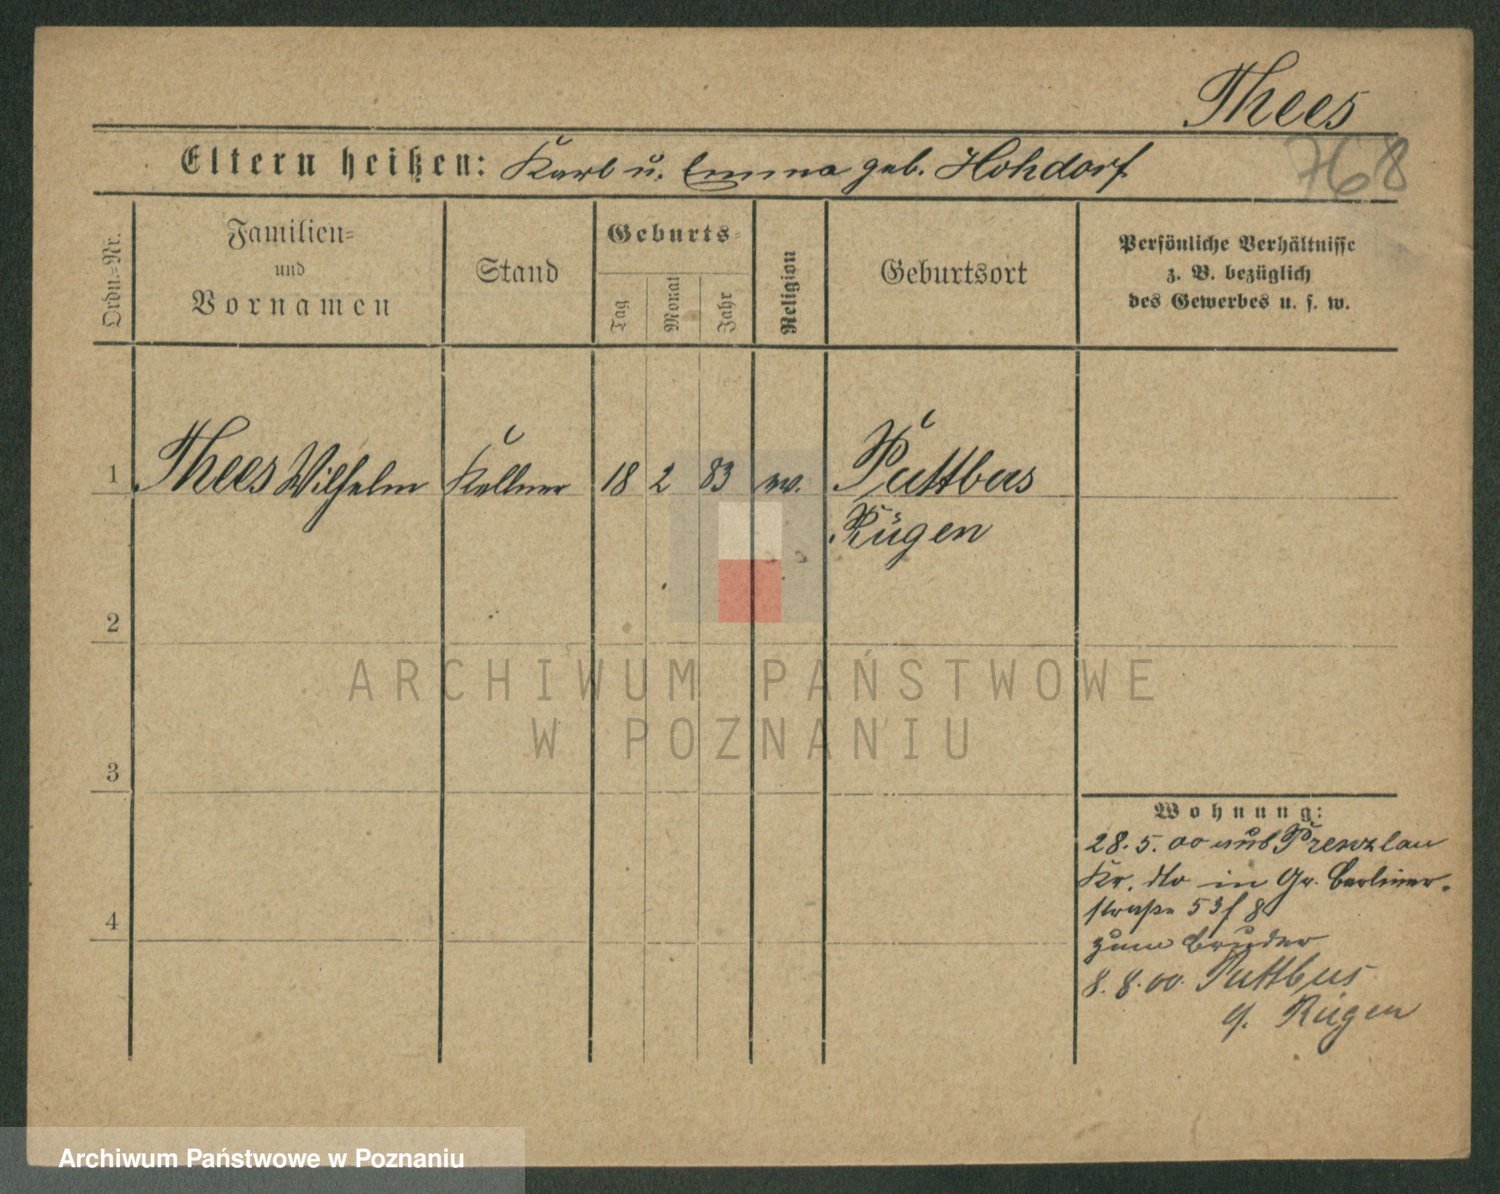 Thees
768
Eltern heißen: Karl u. Emma geb. Hohdorf
Ordn.-Nr.
Familien-
und
Vornamen
Stand
Geburts-
Tag
Monat
Jahr
Religion
Geburtsort
Persönliche Verhältnisse
z. B. bezüglich
des Gewerbes u. s. w.
1 Thees Wilhelm Kellner 18 2 83 ev. Puttbus
Rügen
2
3
4
Wohnung:
28. 5. 00 aus Prenzlau
Kr. dto in Gr. Berliner-
straße 53 f 8
zum Bruder
8. 8. 00. Puttbus
a. Rügen
ARCHIWUM PAŃSTWOWE
W POZNANIU
Archiwum Państwowe w Poznaniu